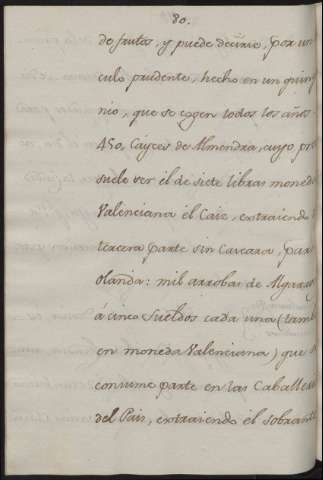 80.
de frutos, y puede decirse, por un
culo prudente, hecho en un quin
nio, que se cogen todos los años
450, Cayces de Almendra, cuyo pre
suele ser el de siete libras moneda
Valenciana el Caiz, extraiendo
tercera parte sin Cascara, par
olanda: mil arrobas de Algarro
á cinco sueldos cada una (tam
en moneda Valenciana) que
consume parte en las Caballe
del Pais, extraiendo el sobrante